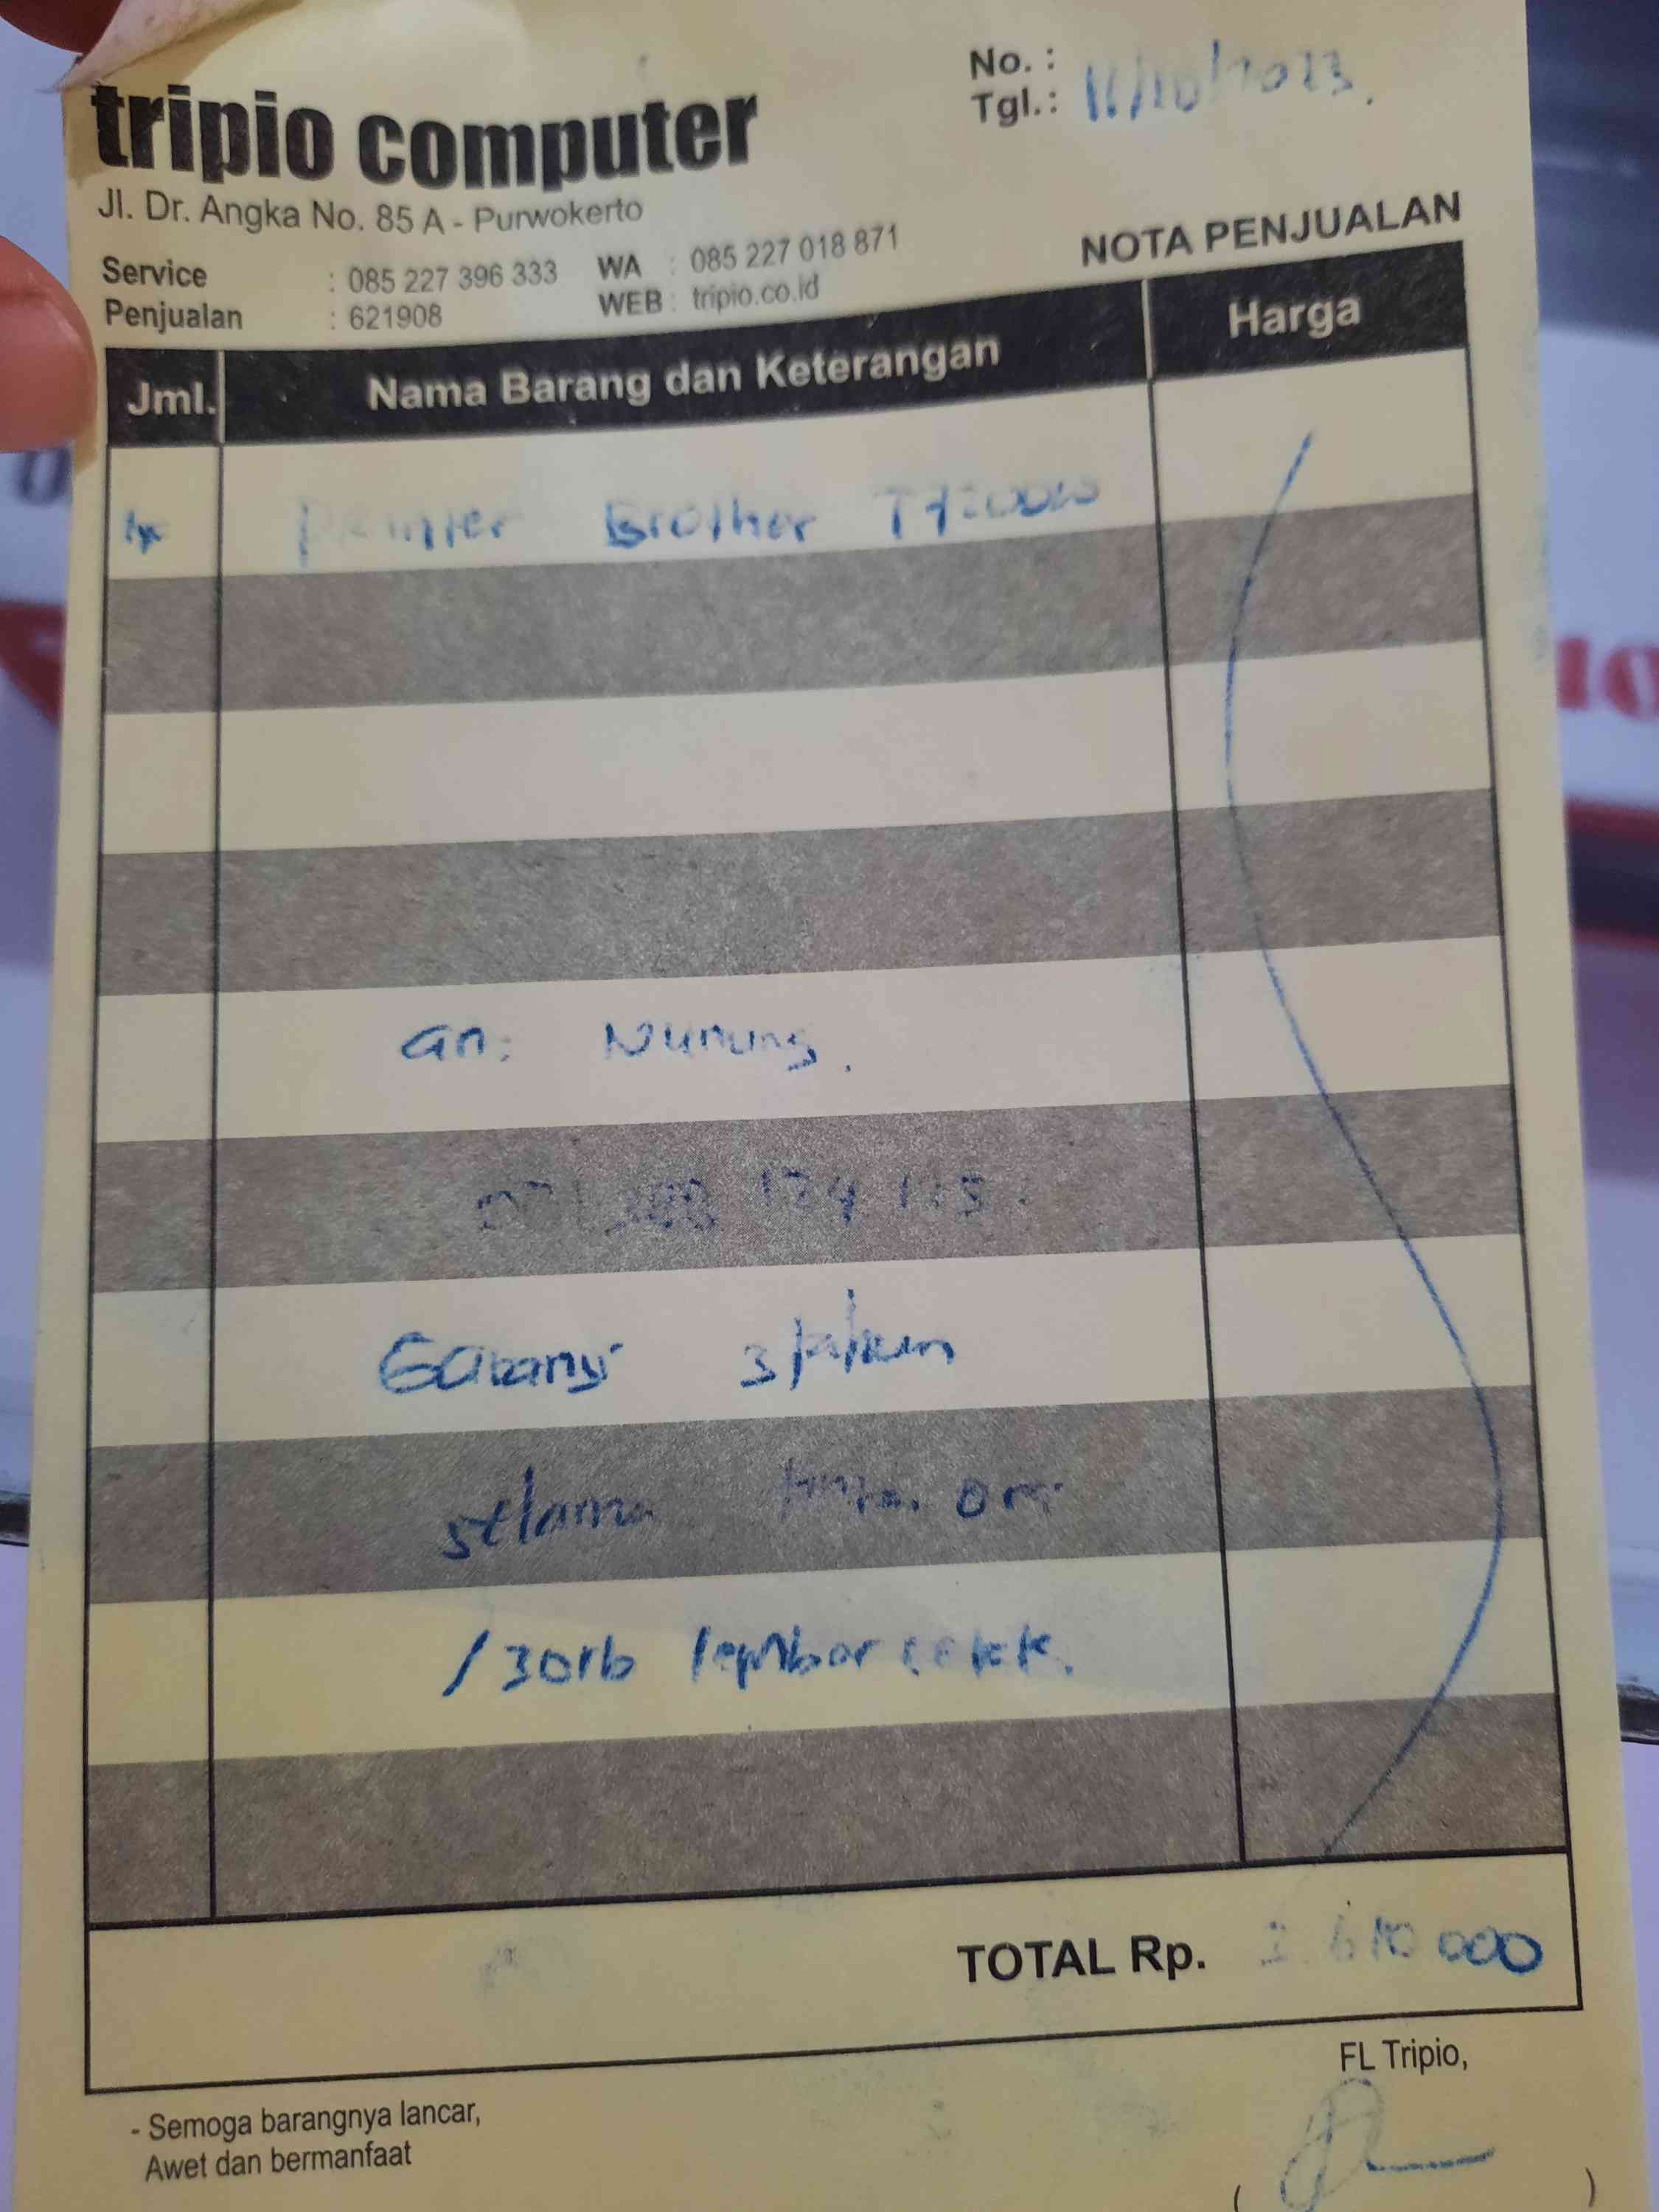 No. :
Tgl.: 11/10/2023.
tripio computer
Jl. Dr. Angka No. 85 A - Purwokerto
Service : 085 227 396 333 WA : 085 227 018 871
Penjualan : 621908 WEB : tripio.co.id
NOTA PENJUALAN
Jml. Nama Barang dan Keterangan Harga
1x Printer Brother
an: Nunung.
Garansi 3 tahun
selama
/30rb lembar cetak.
TOTAL Rp. 000
FL Tripio,
- Semoga barangnya lancar,
Awet dan bermanfaat
( )